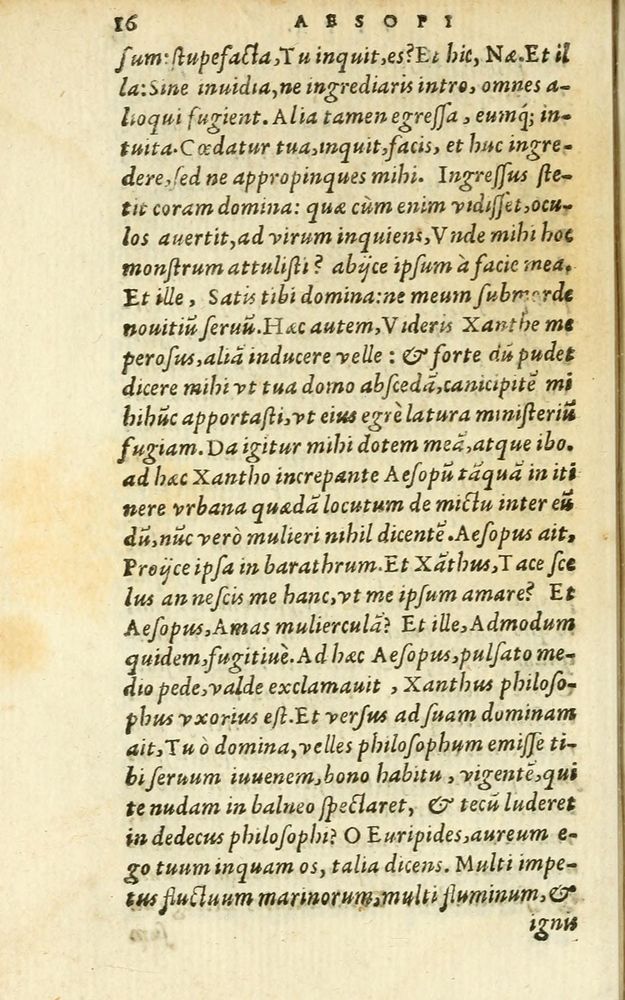 16 AESOPI
sum: stupefacta, Tu inquit, es? Et hic, Næ. Et il
la: Sine inuidia, ne ingrediaris intro, omnes a-
lioqui fugient. Alia tamen egressa, eumq́; in-
tuita. Cœdatur tua, inquit, facis, et huc ingre-
dere, sed ne appropinques mihi. Ingressus ste-
tit coram domina: quæ cùm enim vidisset, ocu-
los auertit, ad virum inquiens, Vnde mihi hoc
monstrum attulisti? abijce ipsum à facie mea.
Et ille, Satis tibi domina: ne meum submorde
nouitiũ seruũ. Hæc autem, Videris Xanthe me
perosus, aliã inducere velle: & forte dũ pudet
dicere mihi vt tua domo abscedã, canicipitẽ mi
hi hũc apportasti, vt eius egrè latura ministeriũ
fugiam. Da igitur mihi dotem meã, atque ibo.
ad hæc Xantho increpante Aesopũ tãquã in iti
nere vrbana quædã locutum de mictu inter eũ
dũ, nũc verò mulieri nihil dicentẽ. Aesopus ait,
Proijce ipsa in barathrum. Et Xãthus, Tace sce
lus an nescis me hanc, vt me ipsum amare? Et
Aesopus, Amas mulierculã? Et ille, Admodum
quidem, fugitiuè. Ad hæc Aesopus, pulsato me-
dio pede, valde exclamauit, Xanthus philoso-
phus vxorius est. Et versus ad suam dominam
ait, Tu ò domina, velles philosophum emisse ti-
bi seruum iuuenem, bono habitu, vigentẽ, qui
te nudam in balneo spectaret, & tecũ luderet
in dedecus philosophi? O Euripides, aureum e-
go tuum inquam os, talia dicens. Multi impe-
tus fluctuum marinorum, multi fluminum, &
ignis